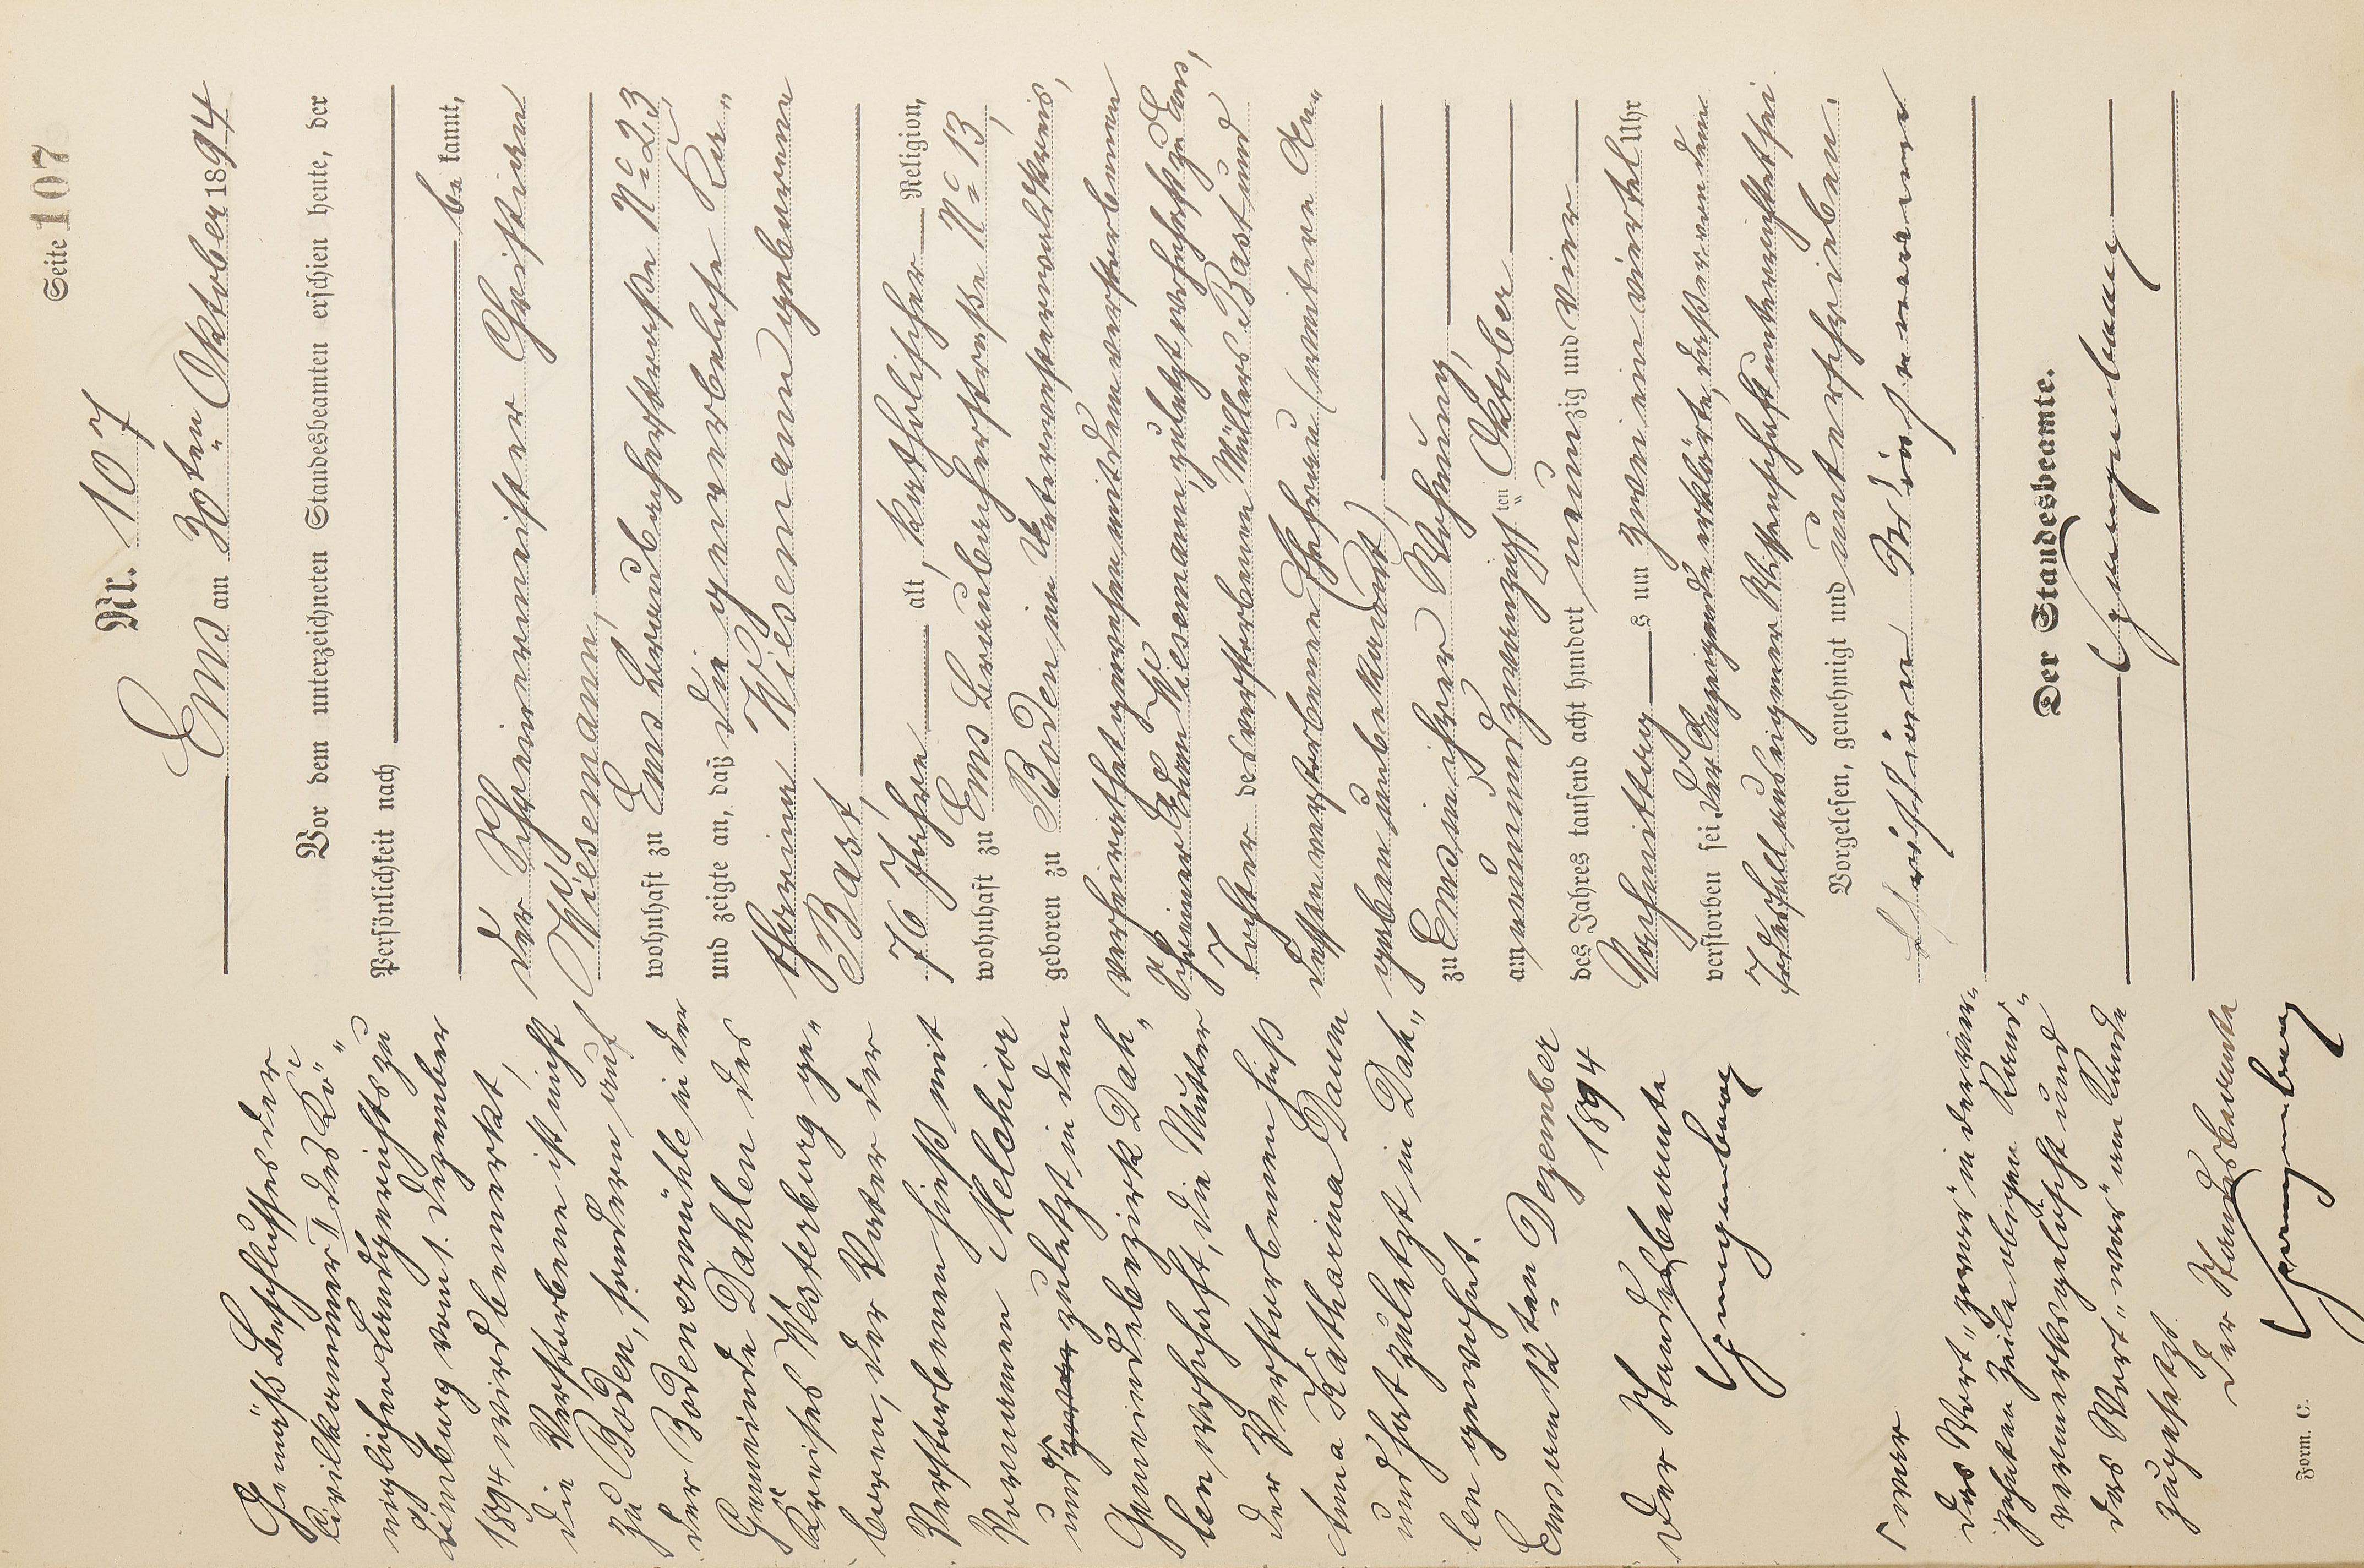 Seite 107
Nr. 107
Ems am 30ten Oktober 1894
Vor dem unterzeichneten Standesbeamten erschien heute, der
Persönlichkeit nach
be kannt,
der Schreinermeister Christian
Wisemann,
wohnhaft zu Ems Braubacherstraße No 23,
und zeigte an, daß die gewerbelose Ka„
tharina Wisemann geborene
Bast,
76 Jahre alt, katholischer Religion,
wohnhaft zu Ems Braubacherstraße No 13,
geboren zu Boden im Unterwesterwaldkreis,
verheirathet gewesen mit dem verstorbenen
Schreiner Adam Wisemann, zuletzt wohnhaft zu Ems,
Tochter des verstorbenen Müllers Bast und
dessen verstorbenen Ehefrau (weitere An„
gaben unbekannt),
zu Ems in ihrer Wohnung,
am neunundzwanzigsten Oktober
des Jahres tausend acht hundert neunzig und vier
Nachmittags um zwei ein viertel Uhr
verstorben sei. Der Anzeigende erklärte, daß er von dem
Todesfall aus eigener Wissenschaft unterrichtet sei.
Vorgelesen, genehmigt und unterschrieben.
Christian Wisemann
Der Standesbeamte.
Spangenberg
Gemäß Beschlusses der
Civilkammer II des Kö„
niglichen Landgerichts zu
Limburg vom 1. Dezember
1894 wird bemerkt,
die Verstorbene ist nicht
zu Boden, sondern auf
der Bodenermühle in der
Gemeinde Dahlen des
Kreises Westerburg ge„
boren, der Vater der
Verstorbenen hieß mit
Vornamen Melchior
und zuletzt in dem
Gemeindebezirk Dah„
len wohnhaft, die Mutter
der Verstorbenen hieß
Anna Katharina Daum
und hat zuletzt in Dah„
len gewohnt.
Ems am 12ten Dezember
1894
Der Standesbeamte
Spangenberg
war
Das Wort „zwar“ in der vier„
zehnten Zeile obigen Rand„
vermerks gelöscht und
das Wort „war“ am Rande
zugesetzt.
Der Standesbeamte
Spangenberg
Form. C.